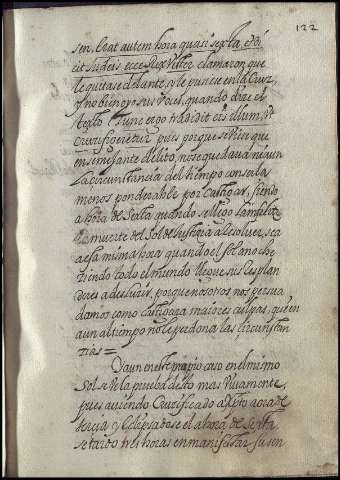 122
sen. Erat autem hora quasi sexta, et di
cit Judeis, ecce Rex Vester clamaron que
le quitase delante, y le pusiese en la Cruz,
y no bien oyo sus voces, quando dize el
texto Tunc ergo tradidit eis illum, ut
Crucifigeretur pues porque se viera que
en semejante delito, no se quedaua ni aun
la circunstancia del tiempo con ser la
menos ponderable por castigar, siendo
a hora de Sexta quando se llego
la muerte del Sol de Justicia a resoluer, sea
a esa misma hora quando el sol anoche
ziendo todo el mundo llegue sus resplan
dores a desluzir, porque nosotros nos persua
damos como castigara maiores culpas, quien
aun al tiempo no le perdona las circunstan
tias =
Y aun en este propio caso en el mismo
Sol se ve la prueba desto mas viuamente,
pues auiendo Crucificado a Xpto a ora de
tercia y Eclipsadose el a hora de Sexta
se tardo tres horas en manifestar su sen